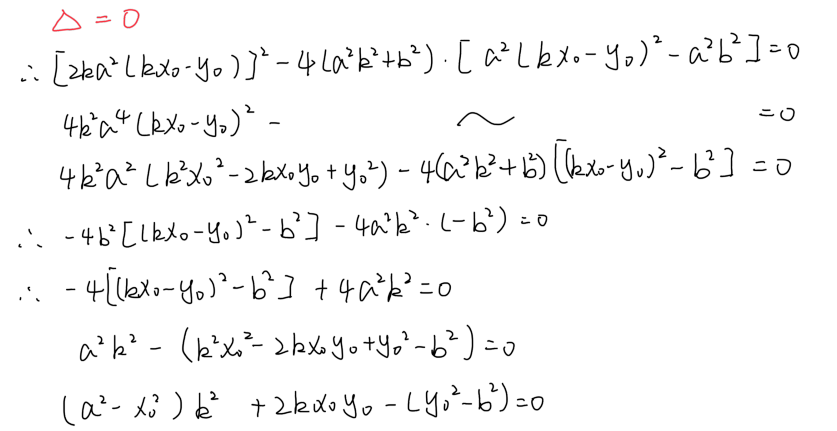 △ = 0
∴ [2ka²(kx₀-y₀)]² - 4(a²k²+b²)·[a²(kx₀-y₀)²-a²b²]=0
4k²a⁴(kx₀-y₀)² - ～ =0
4k²a²(k²x₀²-2kx₀y₀+y₀²) - 4(a²k²+b²)[(kx₀-y₀)²-b²] = 0
∴ -4b²[(kx₀-y₀)²-b²] - 4a²k²·(-b²) = 0
∴ -4[(kx₀-y₀)²-b²] + 4a²k²=0
a²k² - (k²x₀²-2kx₀y₀+y₀²-b²)=0
(a²-x₀²)k² +2kx₀y₀-(y₀²-b²)=0